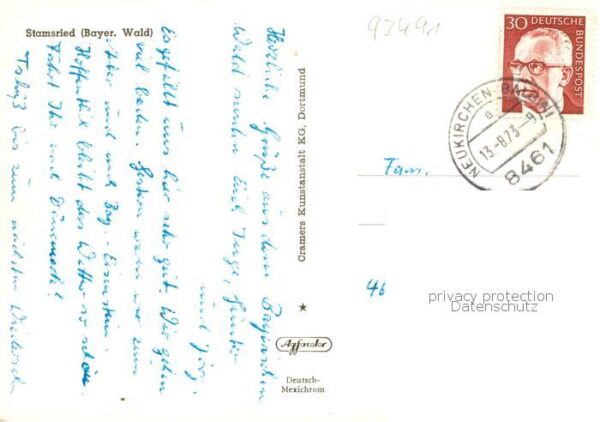 Stamsried (Bayer. Wald)
Herzliche Grüße aus dem Bayerischen
Wald senden Euch Inge, Günter
und Jörg.
Es gefällt uns hier sehr gut. Wir gehen
viel baden. Gestern waren wir zum
Arber und nach Bay.-Eisenstein.
Hoffentlich bleibt das Wetter so schön.
Fahrt Ihr nach Dänemark?
Tschüß bis zum nächsten Wiedersehn
Cramers Kunstanstalt KG, Dortmund
Agfacolor
Deutsch-
Mexichrom
93491
30 DEUTSCHE
BUNDESPOST
NEUKIRCHEN-BALBINI
a
13.-8.73-9
8461
Fam.
46
privacy protection
Datenschutz